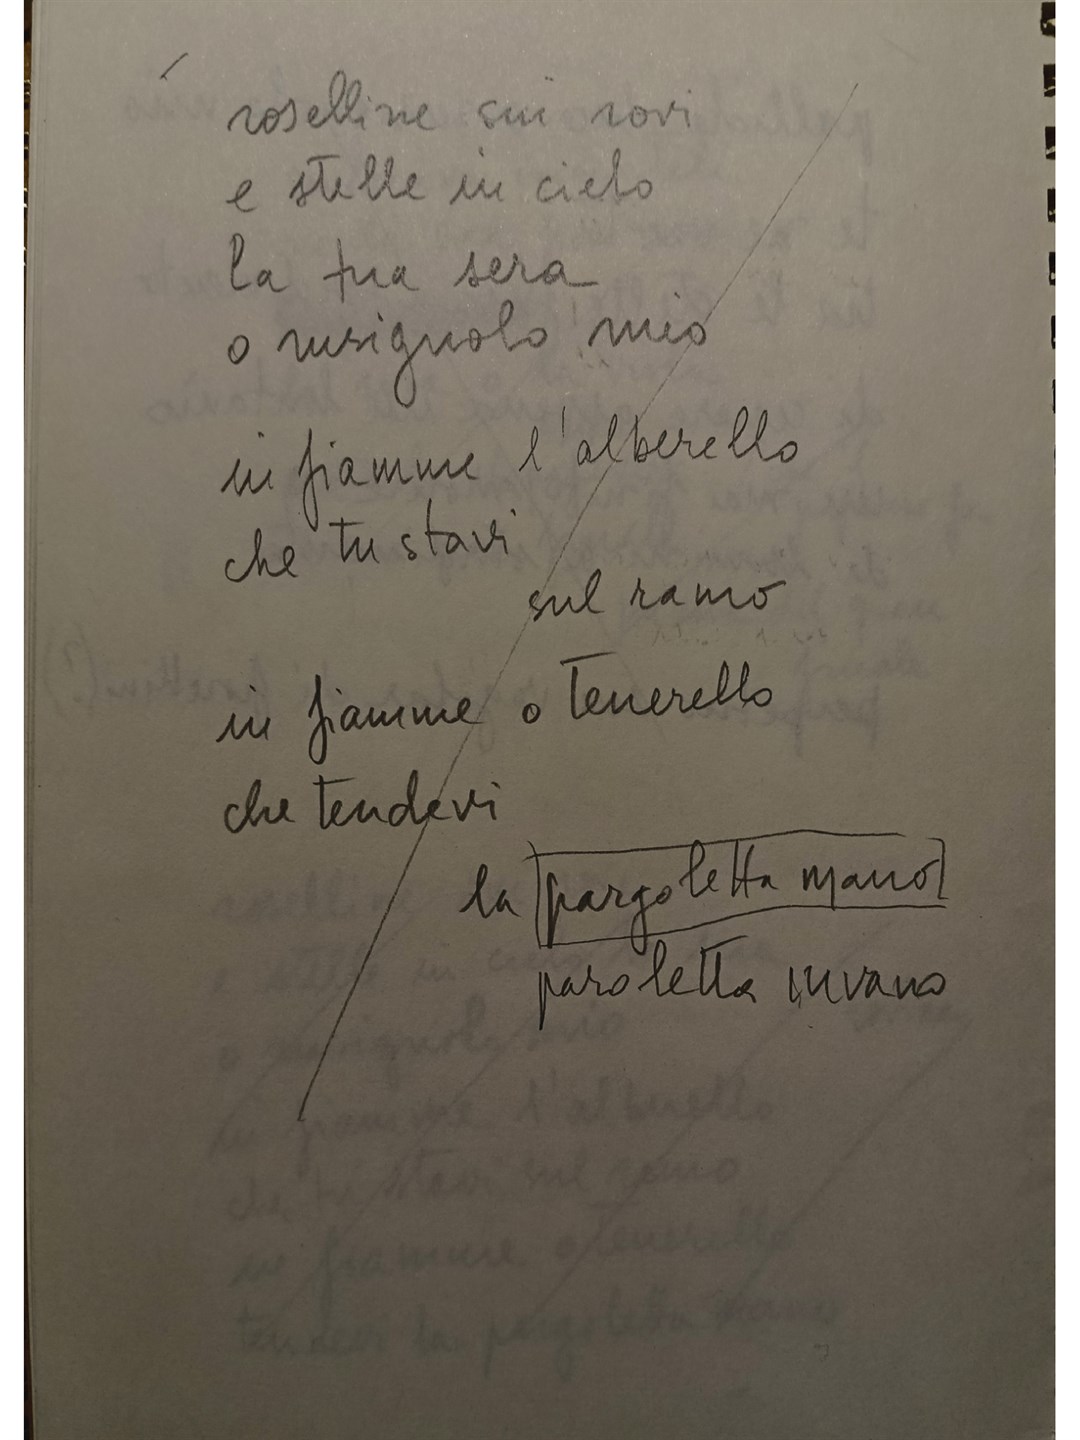 roselline sui rovi
e stelle in cielo
la tua sera
o rusignolo mio
in fiamme l'alberello
che tu stavi
sul ramo
in fiamme o tenerello
che tendevi
la pargoletta mano
paroletta invano